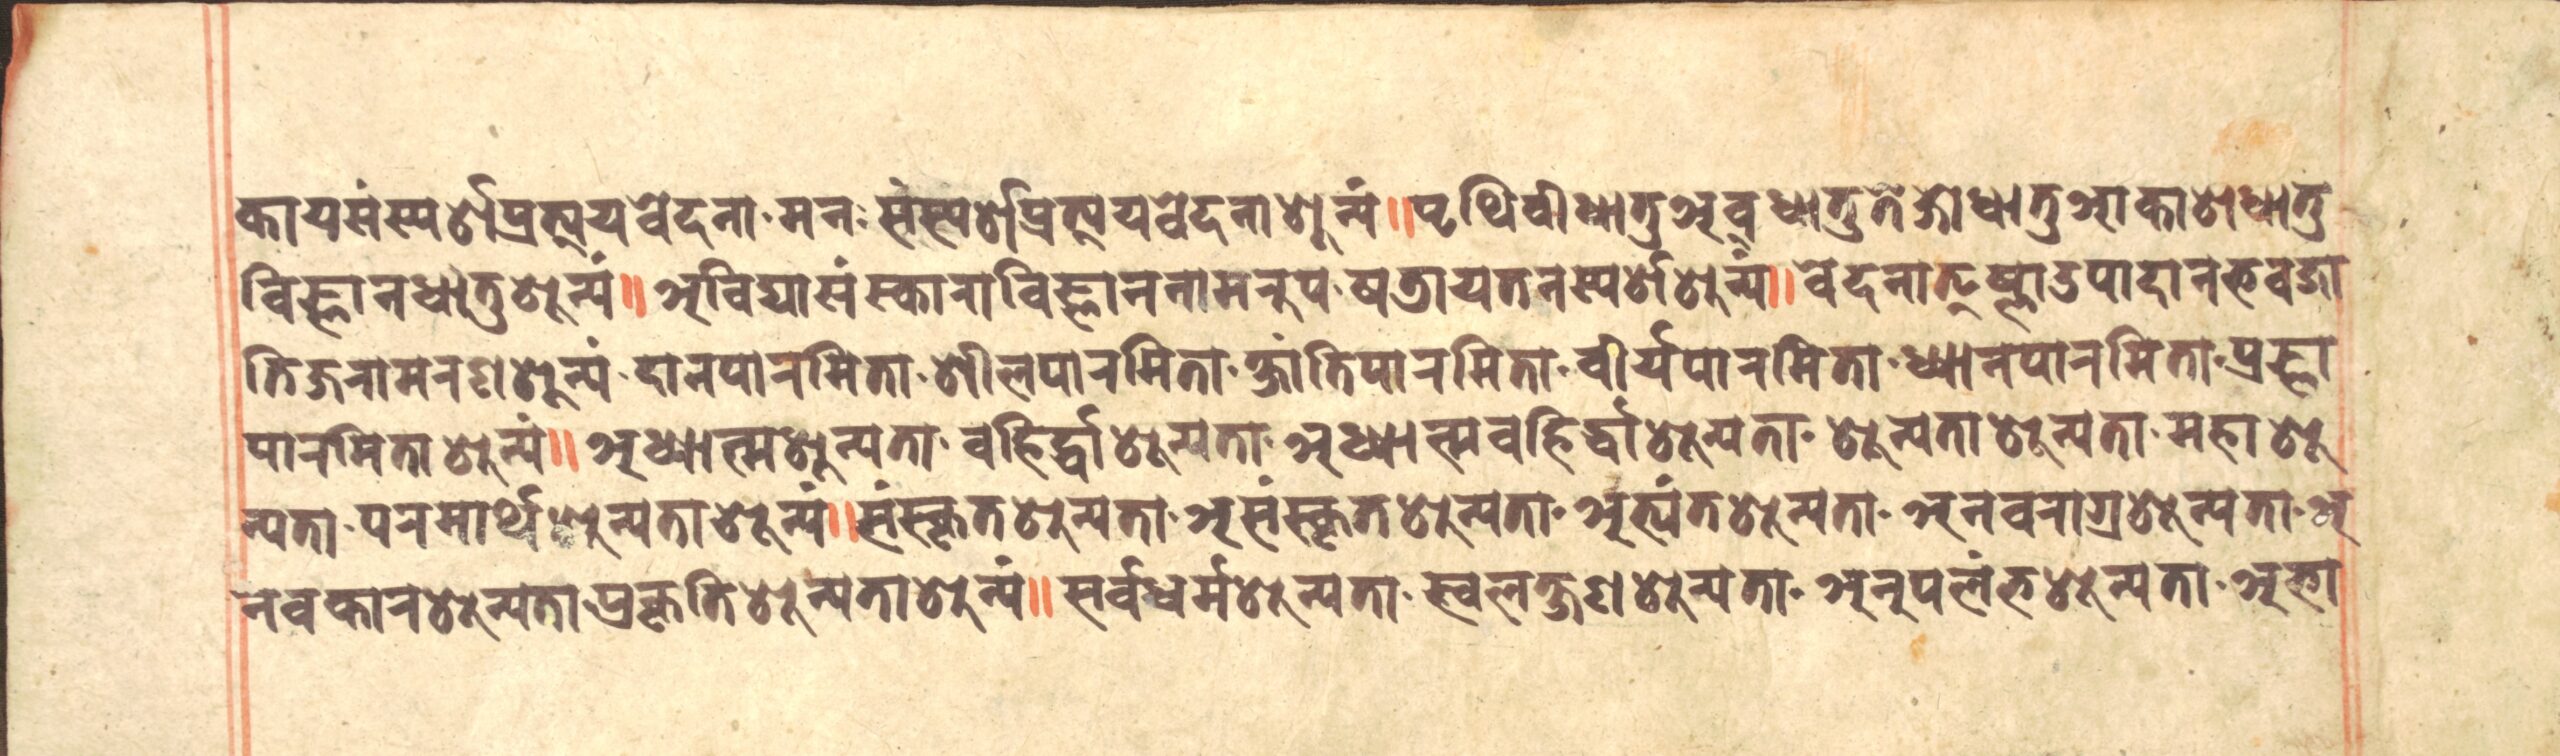 कायसंस्पर्शप्रत्ययवेदना·मनःसंस्पर्शप्रत्ययवेदनाशून्यं॥पृथिवीधातुअव्धातुतेजोधातुआकाशधातु
विज्ञानधातुशून्यं॥अविद्यासंस्काराविज्ञाननामरुप·षडायतनस्पर्शशून्यं॥वेदनातृष्णाउपादानभवजा
तिजरामरणशून्यं·दानपारमिता·शीलपारमिता·क्षांतिपारमिता·वीर्यपारमिता·ध्यानपारमिता·प्रज्ञा
पारमिताशून्यं॥अध्यात्मशून्यता·वहिर्द्धाशून्यता·अध्यात्मवहिर्द्धाशून्यता·शून्यताशून्यता·महाशू
न्यता·परमार्थशून्यताशून्यं॥संस्कृतशून्यता·असंस्कृतशून्यता·अत्यंतशून्यता·अनवराग्रशून्यता·अ
नवकारशून्यता·प्रकृतिशून्यताशून्यं॥सर्वधर्मशून्यता·स्वलक्षणशून्यता·अनुपलंभशून्यता·अभा